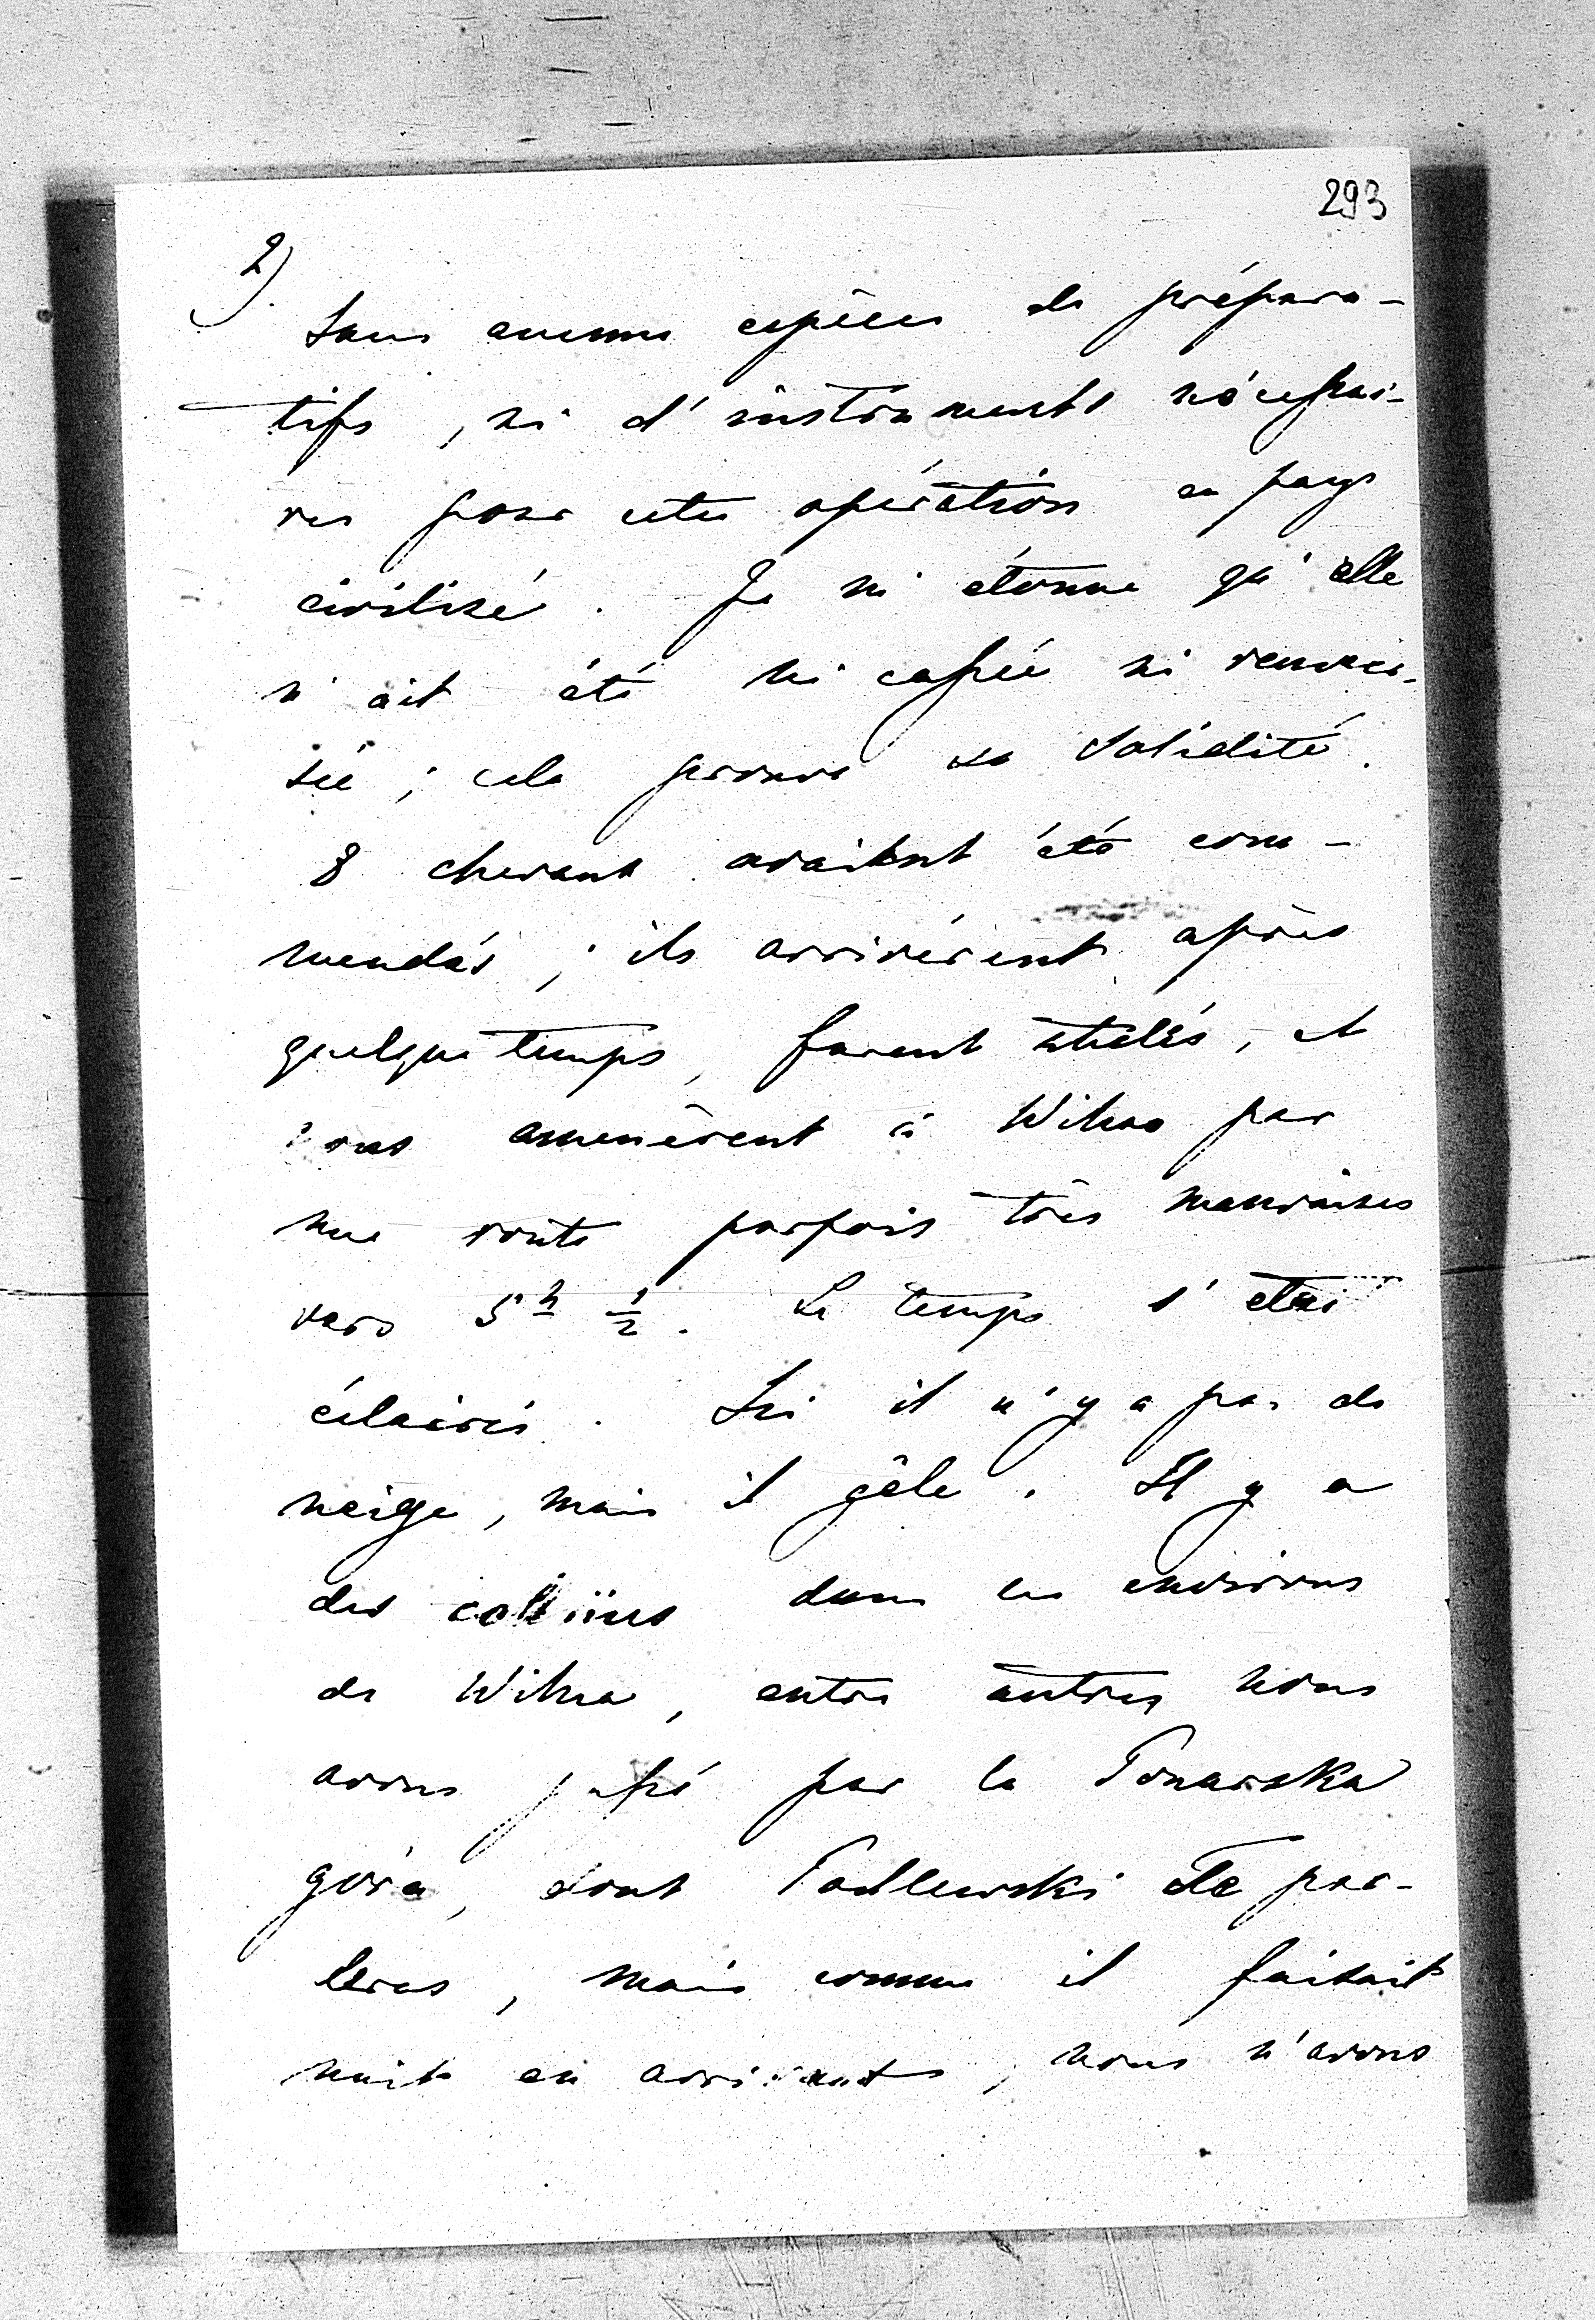 293
2)
sans aucune espèce de prépara-
tifs, ni d'instruments nécessai-
res pour cette opération en pays
civilisé. Je m'étonne qu'elle
n'ait été ni cassée ni renver-
sée; cela prouve sa solidité.
8 chevaux avaient été com-
mendés; ils arrivèrent après
quelque temps, furent attelés, et
nous amenèrent à Wilno par
une route parfois très mauvaises
vers 5 h ½. Le temps s'etai
éclairci. Ici il n'y a pas de
neige, mais il gèle. Il y a
des collines dans les environs
de Wilna, entre autres nous
avons passé par la Ponarska
góra, dont Podlewski te par-
leras, mais comme il faisait
nuit en arrivant, nous n'avons